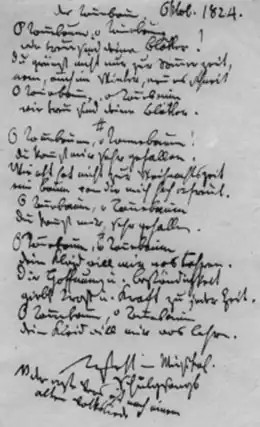 der Tannbaum Oktob. 1824.
O Tannbaum, o Tannbaum!
wie treu sind deine Blätter!
Du grünst nicht nur zur Sommerzeit,
nein, auch im Winter, wenn es schneit
O Tannbaum, o Tannbaum
wie treu sind deine Blätter.
O Tannbaum, o Tannenbaum!
du kannst mir sehr gefallen.
Wie oft hat nicht zur Weihnachtszeit
ein Baum von dir mich hoch erfreut.
O Tannbaum, o Tannbaum
du kannst mir sehr gefallen.
O Tannbaum, o Tannbaum
dein Kleid will mir was lehren.
Die Hoffnung u. Beständigkeit
giebt Trost u. Kraft zu jeder Zeit.
O Tannbaum, o Tannbaum
dein Kleid will mir was lehren.
nach einem
alten Volkslied